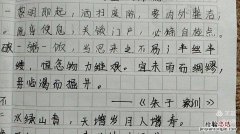 黎明即起，洒扫庭除，要内外整洁；
既昏便息，关锁门户，必亲自检点。
一粥一饭，当思来之不易；半丝半
缕，恒念物力维艰。宜未雨而绸缪，
毋临渴而掘井。
——《朱子家训》
水绿山青，天增岁月人增寿。